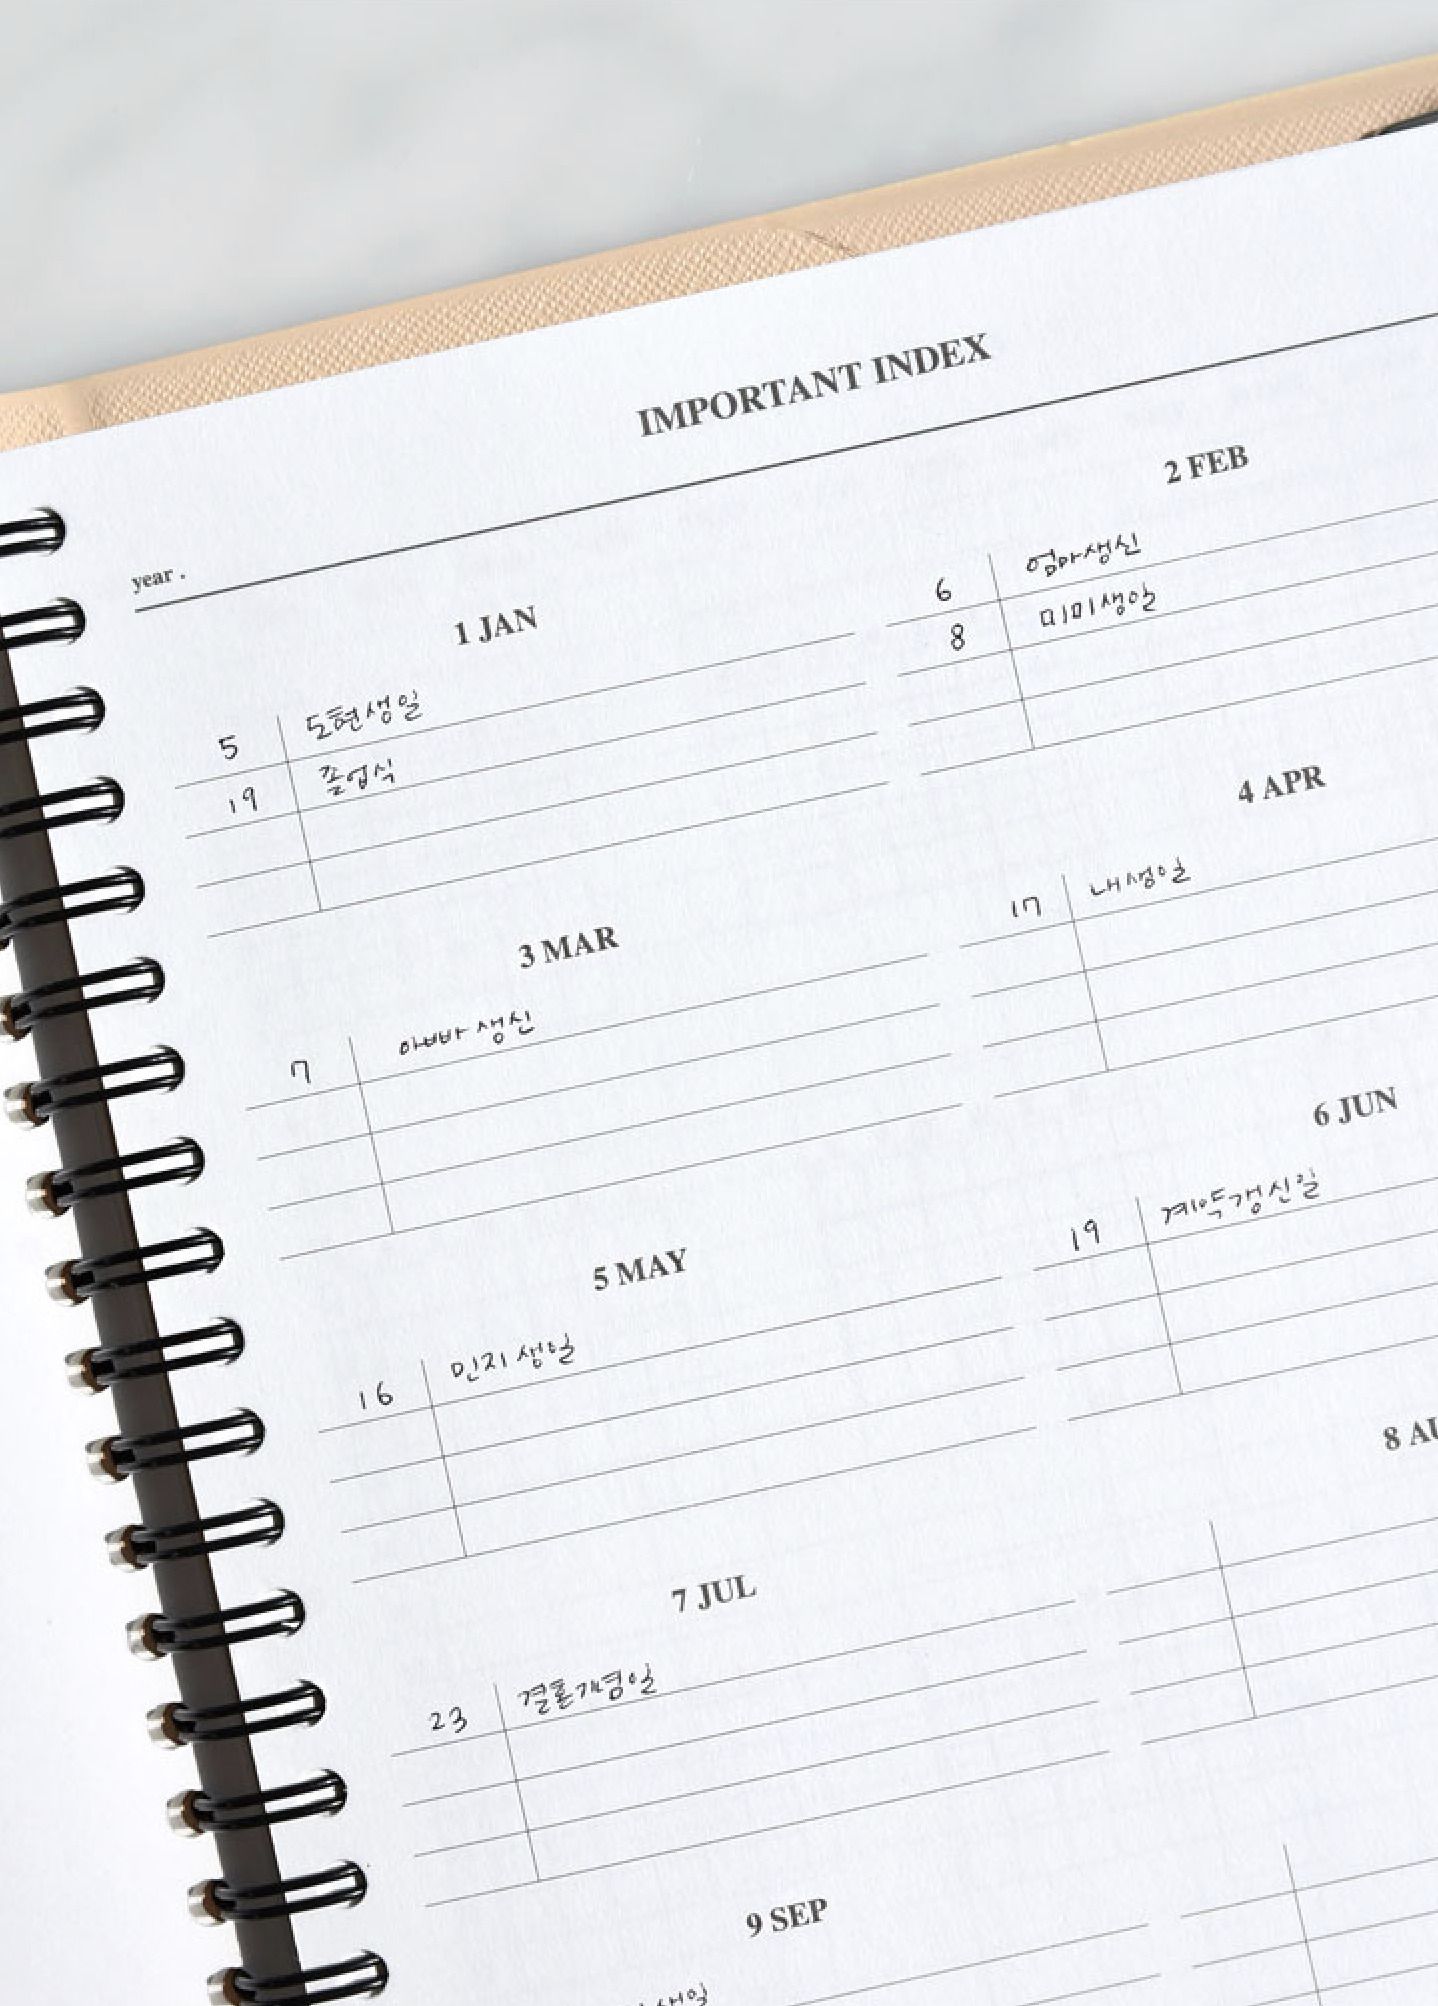 IMPORTANT INDEX
year .
1 JAN
5 도현생일
19 졸업식
2 FEB
6 엄마생신
8 미미생일
3 MAR
7 아빠 생신
4 APR
17 내생일
5 MAY
16 민지 생일
6 JUN
19 계약갱신일
7 JUL
23 결혼기념일
8
9 SEP
생일